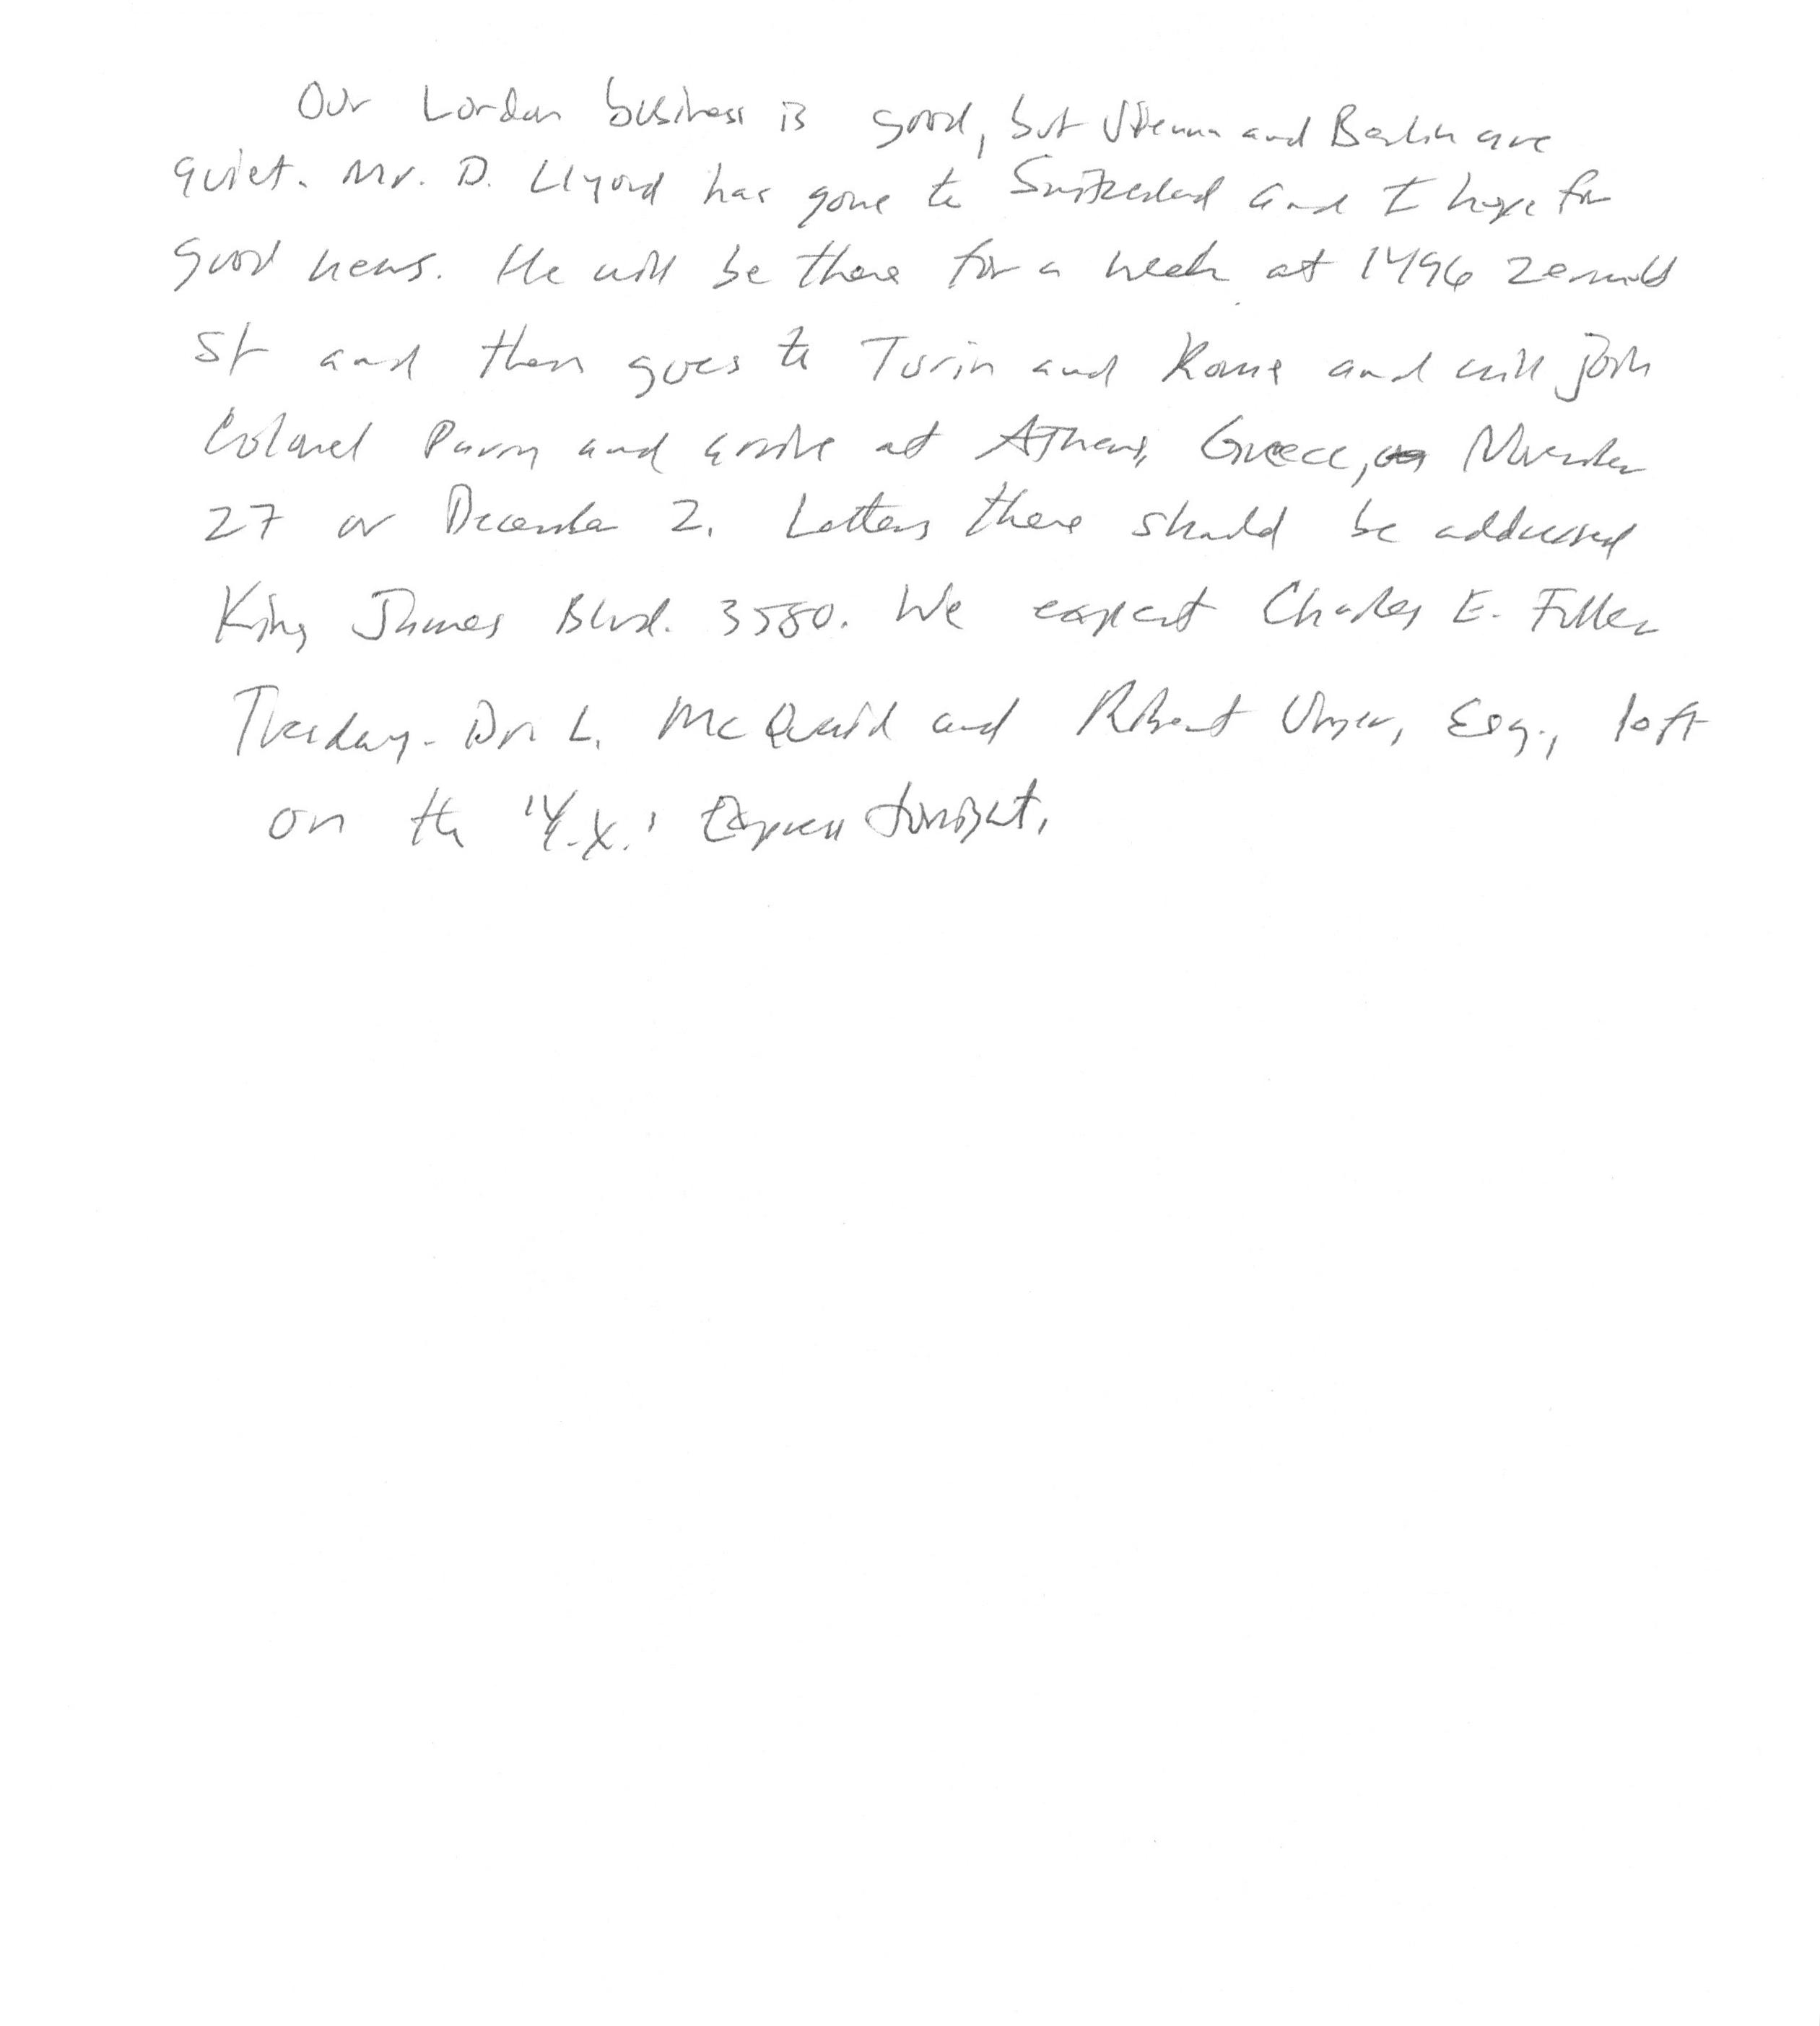 Our London business is good, but Vienna and Berlin are
quiet. Mr. D. Llyod has gone to Switzerland and I hope for
good news. He will be there for a week at 1496 Zermott
St and then goes to Turin and Rome and will join
Colonel Parry and arrive at Athens, Greece, November
27 or December 2. Letters there should be addressed
King James Blvd. 3580. We expect Charles E. Fuller
Tuesday. Dr. L. McQuaid and Robert Unger, Esq., left
on the 'Y.X.' Express tonight.